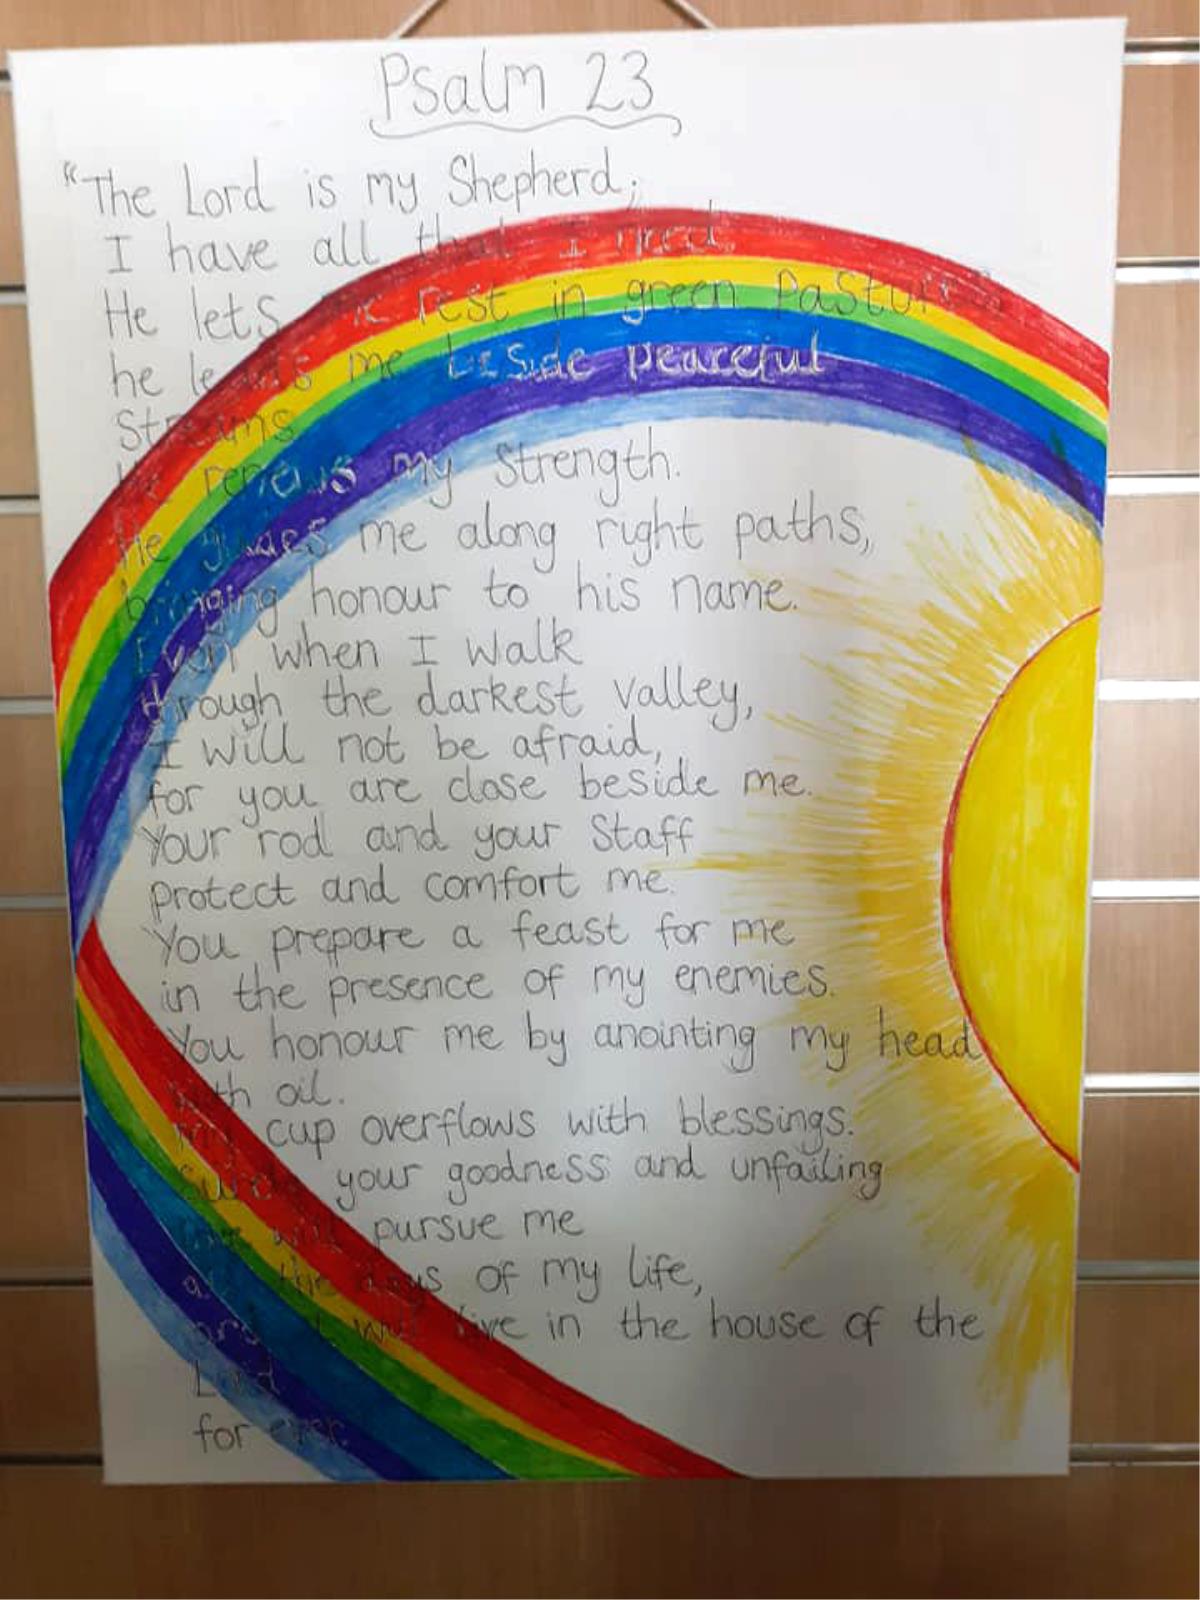 Psalm 23
"The Lord is my Shepherd;
I have all that I need.
He lets me rest in green Pastures
he leads me beside peaceful
Streams.
He renews my Strength.
He guides me along right paths,
bringing honour to his name.
Even when I walk
through the darkest valley,
I will not be afraid,
for you are close beside me.
Your rod and your Staff
protect and comfort me.
You prepare a feast for me
in the presence of my enemies.
You honour me by anointing my head
with oil.
my cup overflows with blessings.
Surely your goodness and unfailing
love will pursue me
all the days of my life,
and I will live in the house of the
Lord
for ever.